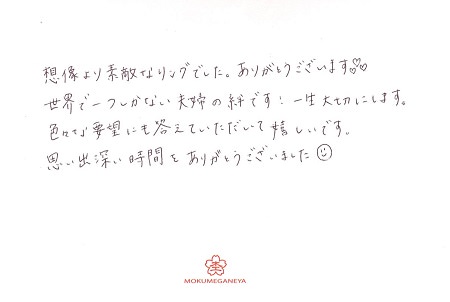 想像より素敵なリングでした。ありがとうございます♡♡
世界で一つしかない夫婦の絆です！一生大切にします。
色々な要望にも答えていただいて嬉しいです。
思い出深い時間をありがとうございました☺
杢
MOKUMEGANEYA